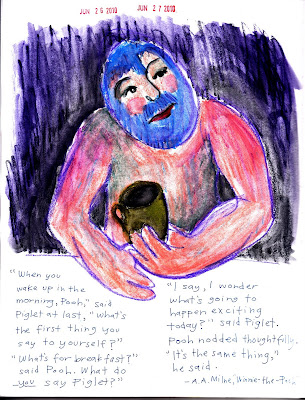 JUN 26 2010 JUN 27 2010
"When you
wake up in the
morning, Pooh," said
Piglet at last, "what's
the first thing you
say to yourself?"
"What's for breakfast?"
said Pooh. What do
you say Piglet?"
"I say, I wonder
what's going to
happen exciting
today?" said Piglet.
Pooh nodded thoughtfully.
"It's the same thing,"
he said.
- A.A. Milne, Winnie-the-Pooh